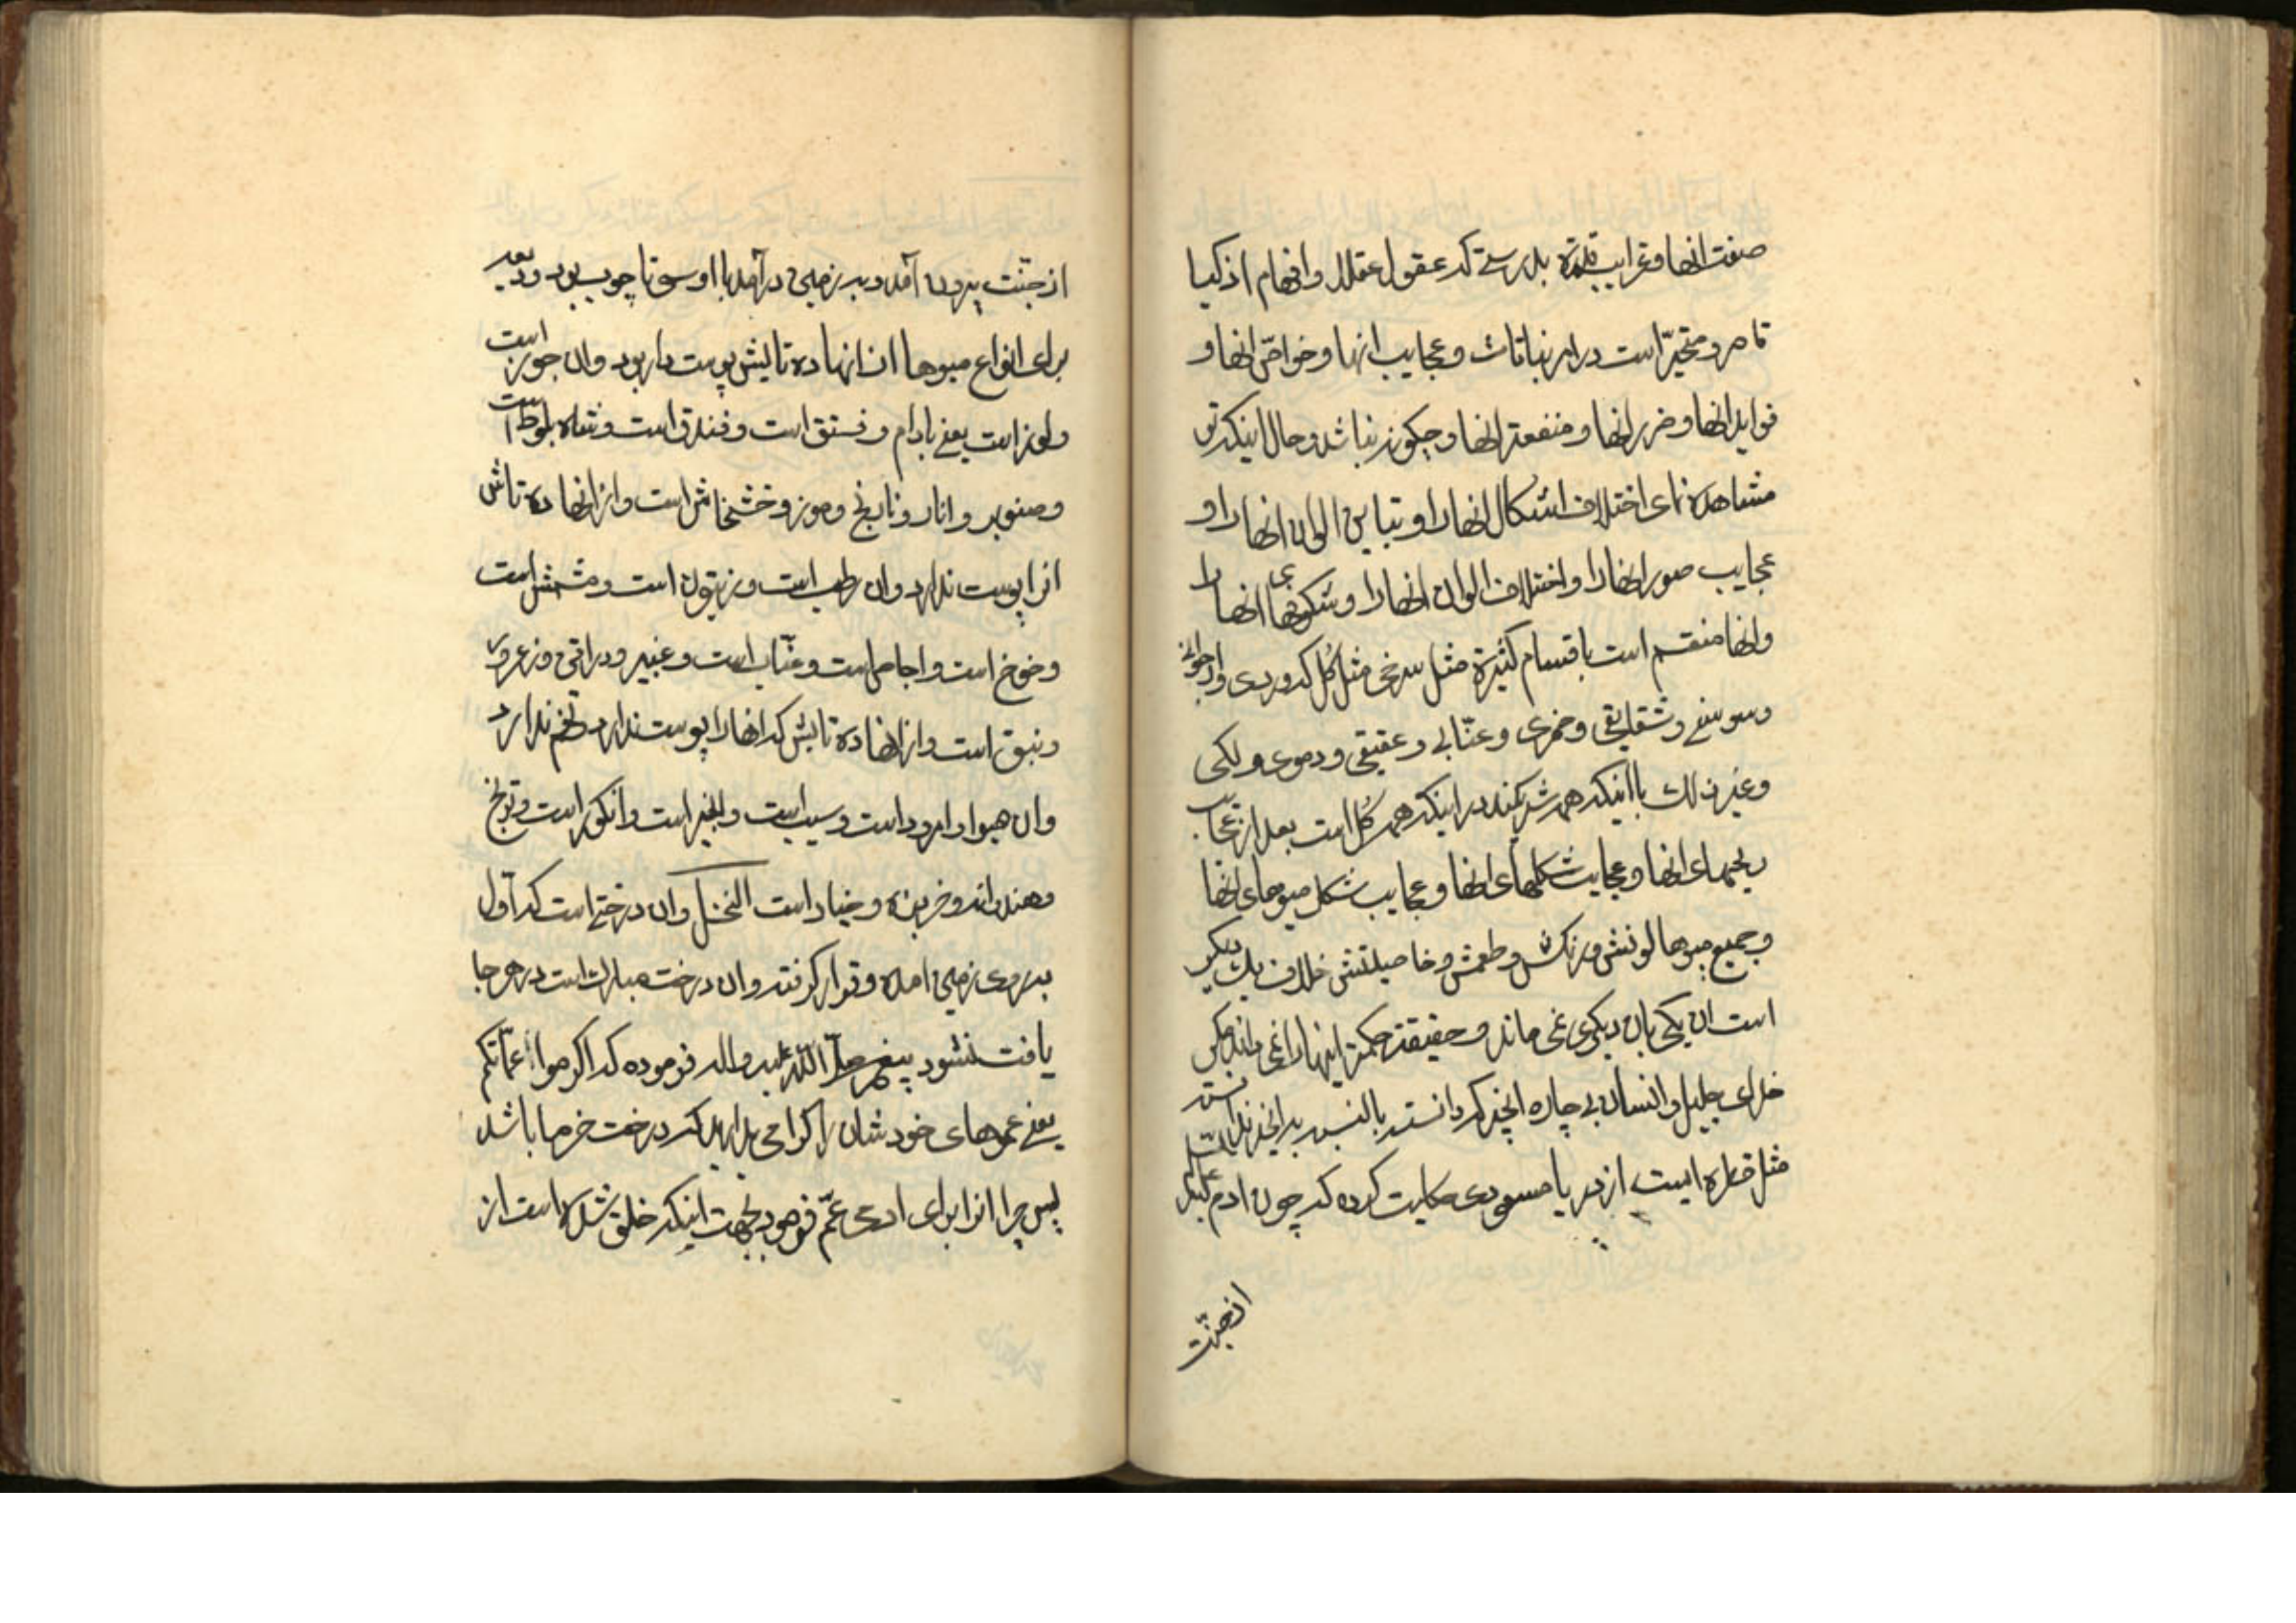 صنعت انها و غرایب قدرة بدرستی که عقول عقلا و افهام اذکیا
قاصر و متحیّر است در امر نباتات و عجایب انها و خواصّ انها و
فواید انها و ضرر انها و منفعة انها و چگونه نباشد و حال اینکه تو
مشاهده نمای اختلاف اشکال انها را و تباین الوان انها را و
عجایب صور انها را و اختلاف الوان انها را و شکوفهای انها را
و انها منقسم است باقسام کثیرة مثل سرخی مثل گل که وردی و ارجوانی
و سوسنی و شقایقی و خمری و عنّابی و عقیقی و دموی و لکی
و غیر ذلك با اینکه همه شریکند در اینکه همه گل است بعد از عجایب
ریحهای انها و عجایب شکلهای انها و عجایب شکل میوهای انها
و جمیع میوها لونش و رنکش و طعمش و خاصیتش خلاف یك دیگر
است ان یکی بان دیکری نمی ماند و حقیقة حکمة اینها را نمی داند مکر
خدای جلیل و انسان بی چاره انچه که دانسته بالنسبه بر انچه ندانسته
مثل قطره ایست از دریا مسعودی حکایت کرده که چون ادم علیه السّلام
از جنّت
از جنّت بیرون آمد و بر زمین درآمد با او سی تا چوب بود و بعد
برای انواع میوها از انها ده تایش پوست دار بود و ان جوز است
و لوز است یعنی بادام و فستق است و فندق است و شاه بلوط است
و صنوبر و انار و نارنج و موز و خشخاش است و از انها ده تاش
انرا پوست ندارد و ان رطب است و زیتون است و مشمش است
و خوخ است و اجاص است و عنّاب است و غبیر و دراقن و زعرور
و نبق است و از انها ده تایش که انها را پوست ندارد تخم ندارد
و ان میوا و امرود است و سیب است و انجیر است و انکور است و ترنج
و هندوانه و خربزه و خیار است النخل و ان درختی است که اوّل
بروی زمین امده و قرار کرفته و ان درخت مبارك است در هر جا
یافت نشود پیغمبر صلّ اللّه علیه و اله فرموده که اکرموا عمّاتکم
یعنی عموهای خودشان را کرامی بدارید که درخت خرما باشد
پس چرا انرا برای ادمی عمّ فرمود بجهت اینکه خلق شده است از